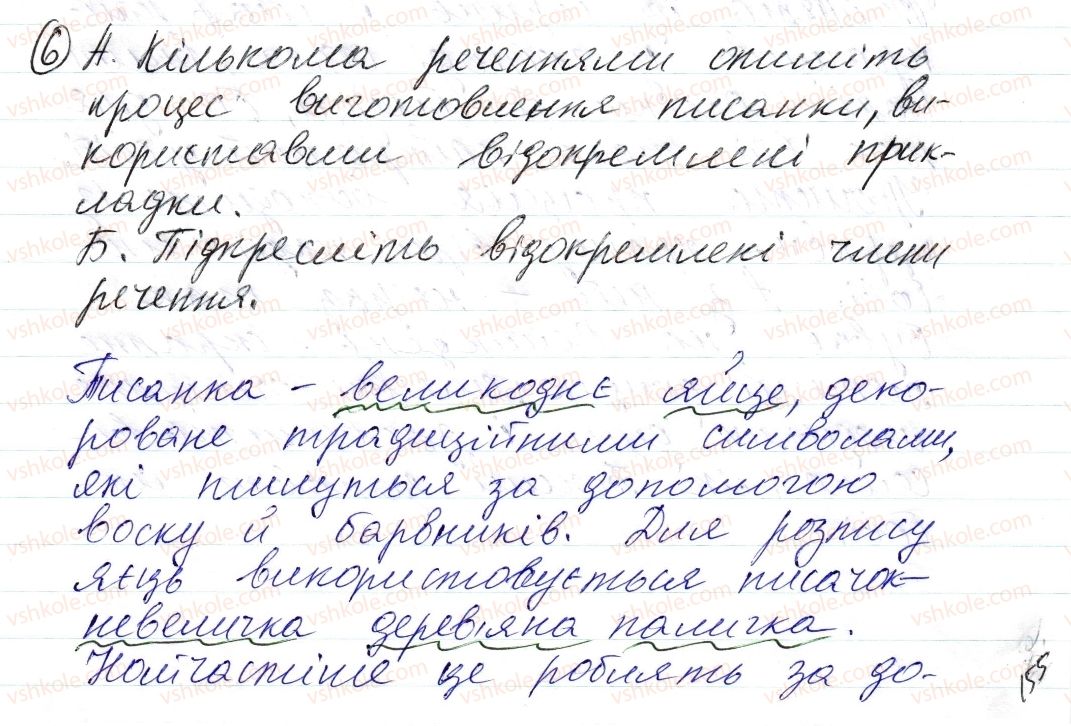 6 А. Кількома реченнями опишіть
процес виготовлення писанки, ви-
користавши відокремлені прик-
ладки.
Б. Підкресліть відокремлені члени
речення.
Писанка - великоднє яйце, деко-
роване традиційними символами,
які пишуться за допомогою
воску й барвників. Для розпису
яєць використовується писачок-
невеличка дерев'яна паличка.
Найчастіше це роблять за до-